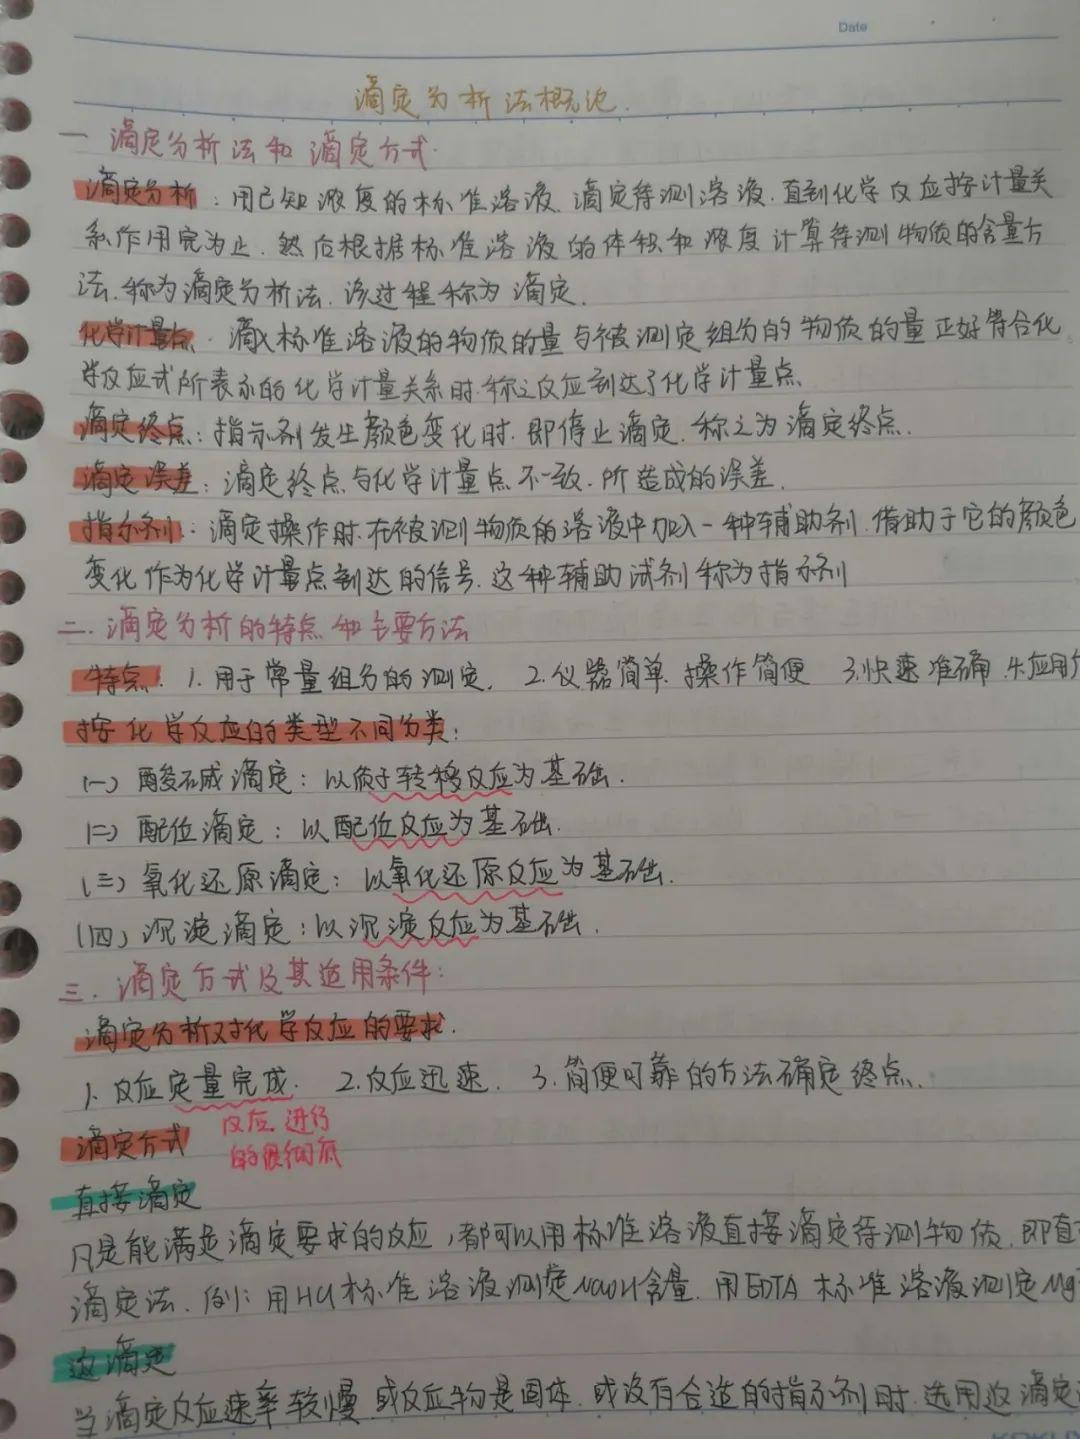 Date
滴定分析法概论.
一 滴定分析法和滴定方式.
滴定分析：用已知浓度的标准溶液.滴定待测溶液.直到化学反应按计量关
系作用完为止.然后根据标准溶液的体积和浓度计算待测物质的含量方
法.称为滴定分析法.该过程称为滴定.
化学计量点.滴入标准溶液的物质的量与被测定组分的物质的量正好符合化
学反应式所表示的化学计量关系时.称之反应到达了化学计量点.
滴定终点：指示剂发生颜色变化时.即停止滴定.称之为滴定终点.
滴定误差：滴定终点与化学计量点不一致.所造成的误差.
指示剂：滴定操作时.在被测物质的溶液中加入一种辅助剂.借助于它的颜色
变化作为化学计量点到达的信号.这种辅助试剂称为指示剂
二.滴定分析的特点和主要方法
特点：1.用于常量组分的测定. 2.仪器简单.操作简便 3.快速准确.4.应用
按化学反应的类型不同分类：
(一) 酸碱滴定：以质子转移反应为基础.
(二) 配位滴定：以配位反应为基础.
(三) 氧化还原滴定：以氧化还原反应为基础.
(四) 沉淀滴定：以沉淀反应为基础.
三.滴定方式及其适用条件：
滴定分析对化学反应的要求.
1.反应定量完成. 2.反应迅速. 3.简便可靠的方法确定终点.
滴定方式 反应进行
的很彻底
直接滴定
凡是能满足滴定要求的反应,都可以用标准溶液直接滴定待测物质.即直
滴定法.例：用HCl标准溶液测定NaOH含量.用EDTA标准溶液测定Mg
返滴定
当滴定反应速率较慢.或反应物是固体.或没有合适的指示剂时.选用返滴定